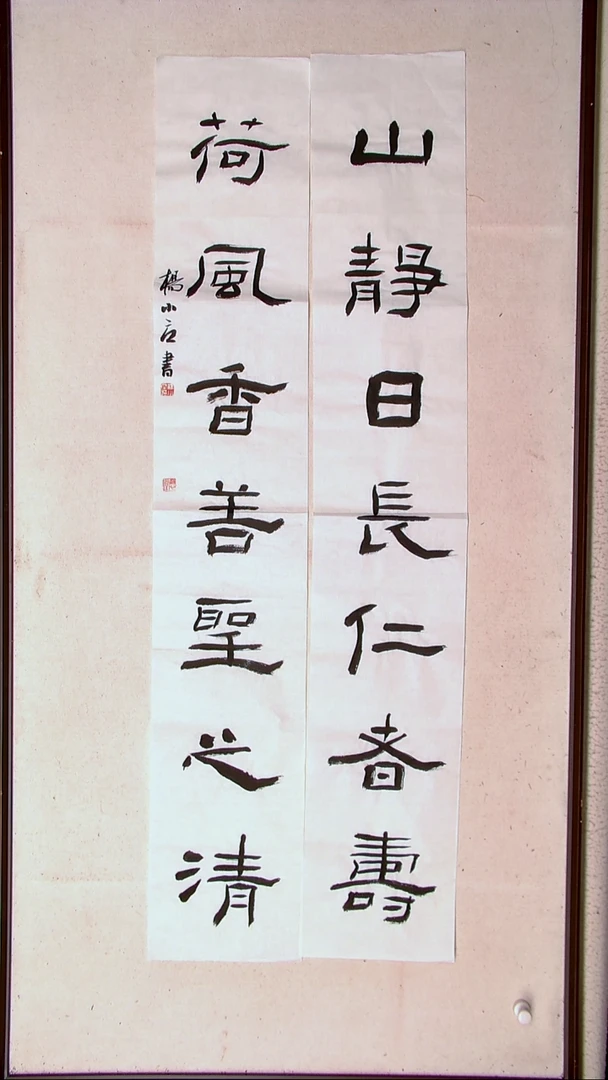 山靜日長仁者壽
荷風香善聖之清
楊小石書